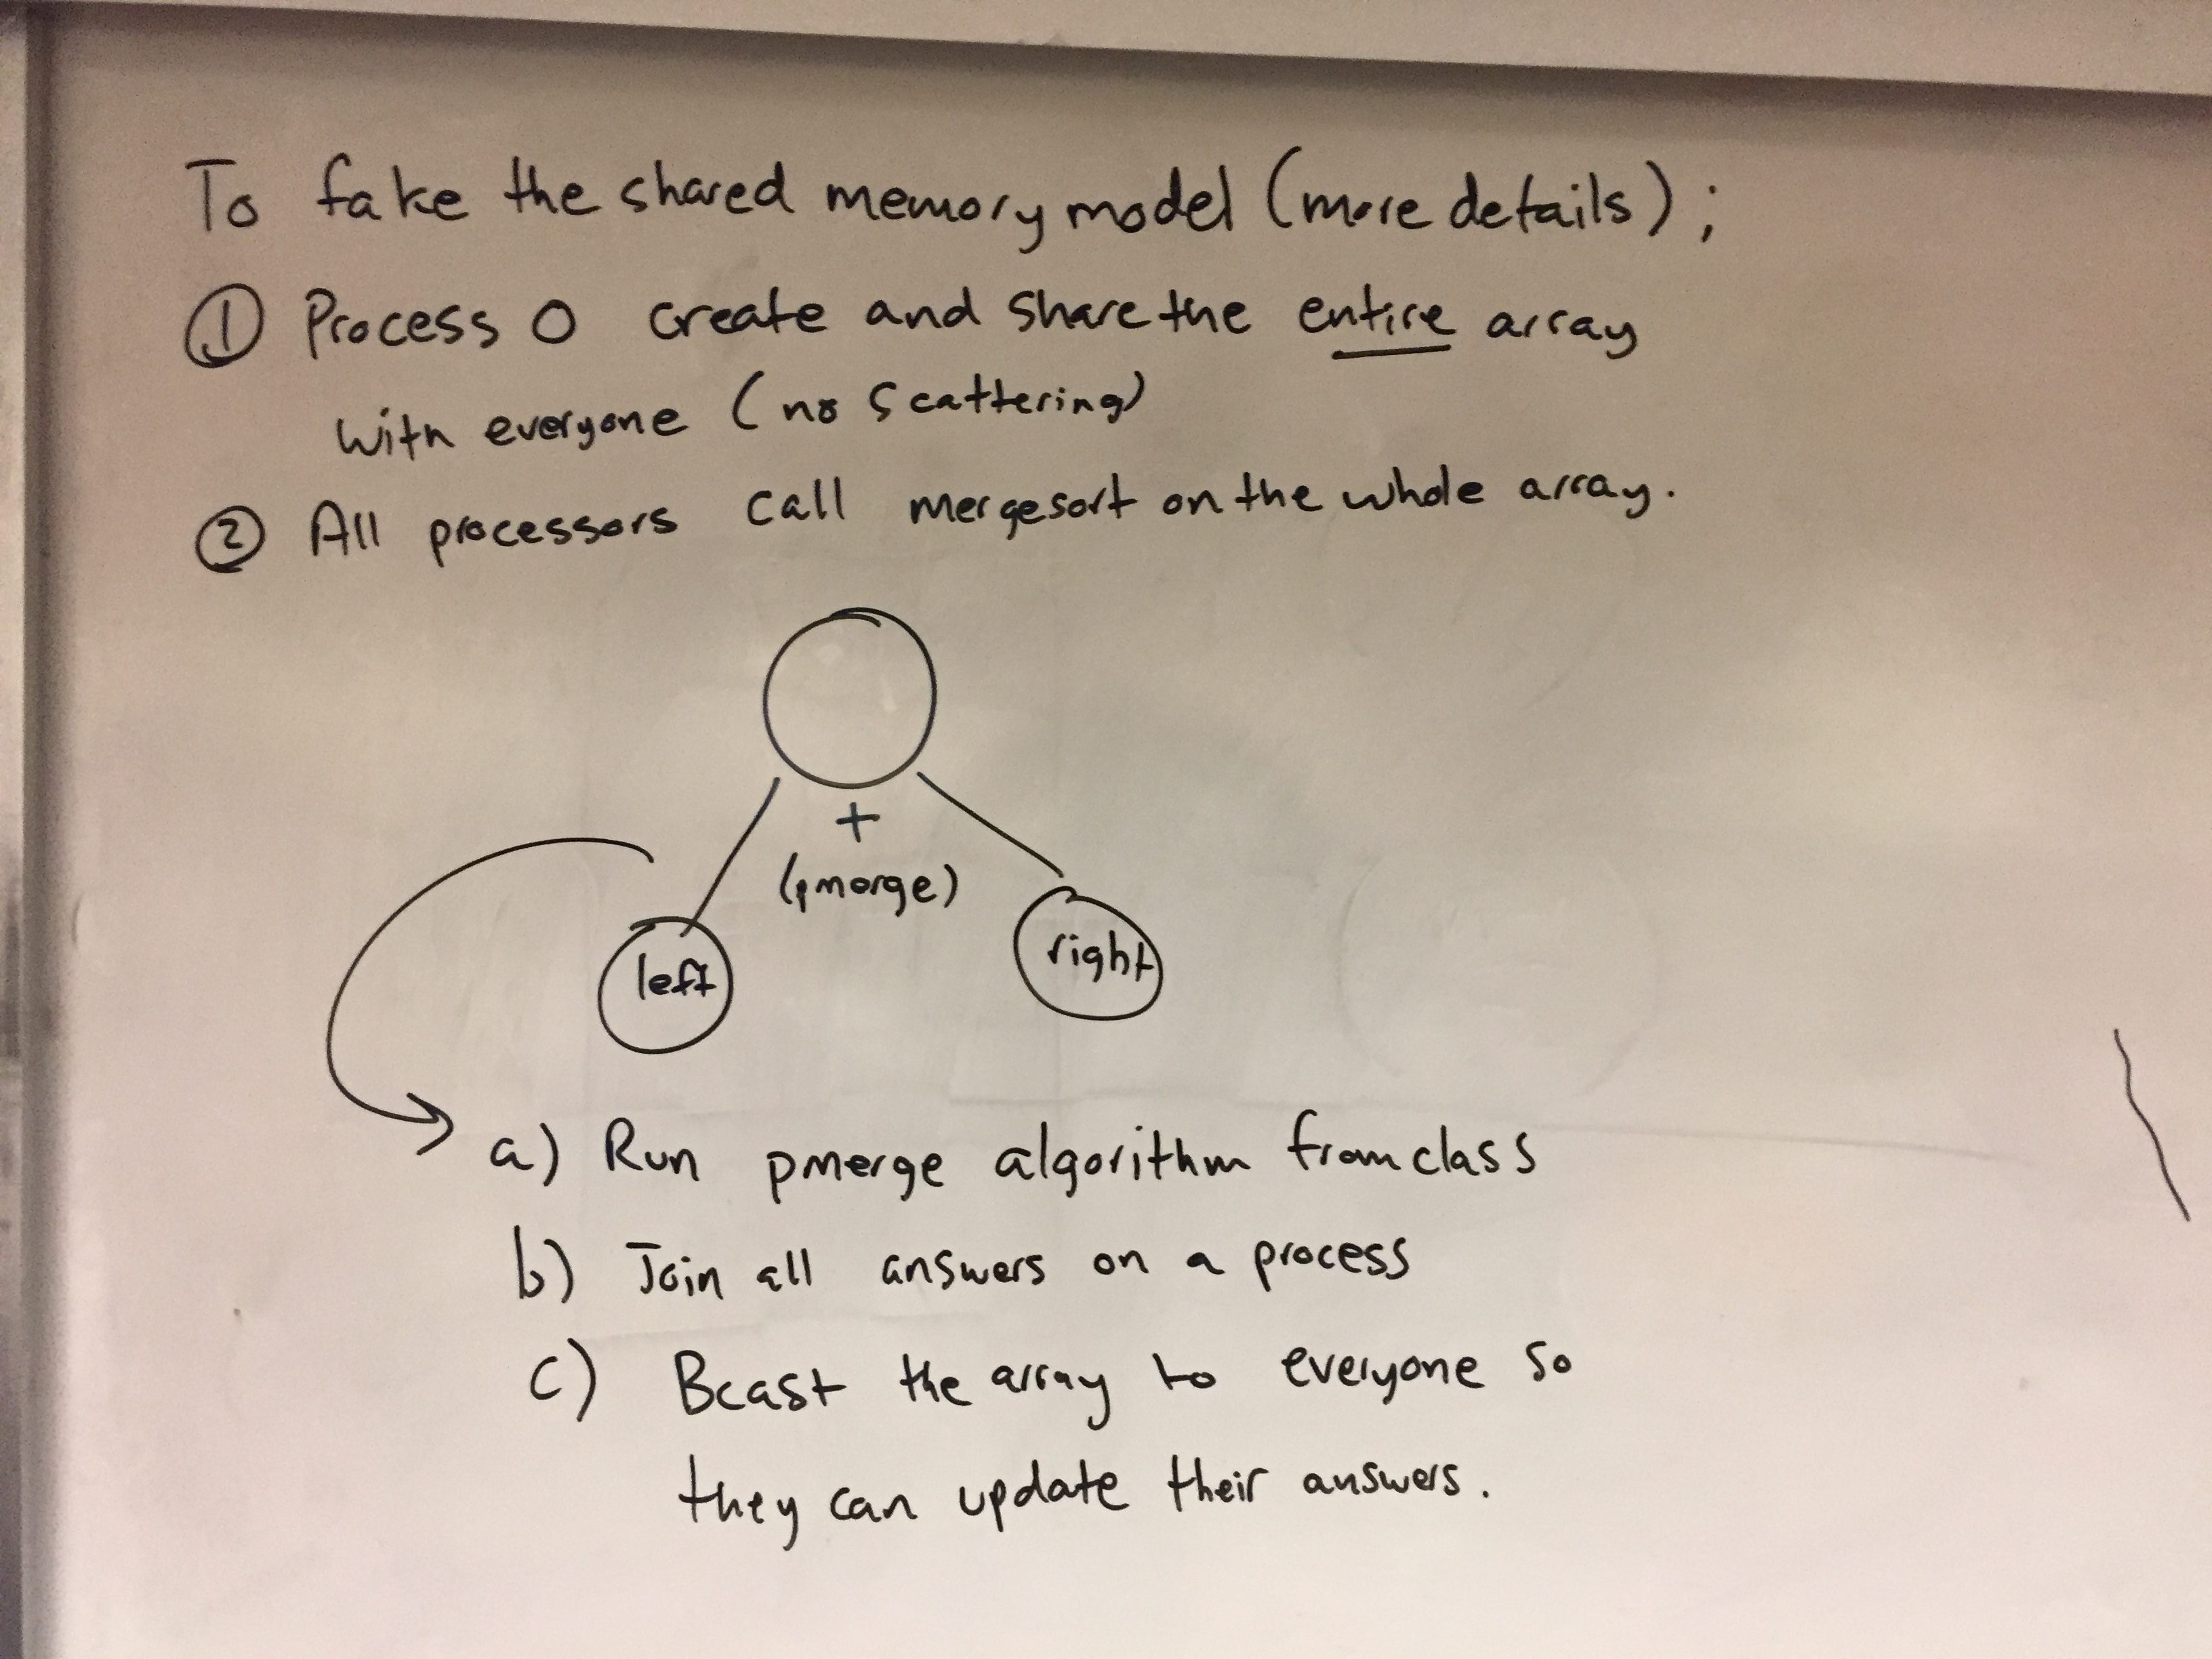 To fake the shared memory model (more details);
① Process 0 create and share the entire array
with everyone (no scattering)
② All processors call mergesort on the whole array.
+
(pmerge)
left
right
a) Run pmerge algorithm from class
b) Join all answers on a process
c) Bcast the array to everyone so
they can update their answers.